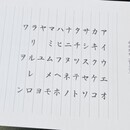 アイウエオ
カキクケコ
サシスセソ
タチツテト
ナニヌネノ
ハヒフヘホ
マミムメモ
ヤユヨ
ラリルレロ
ワヲン